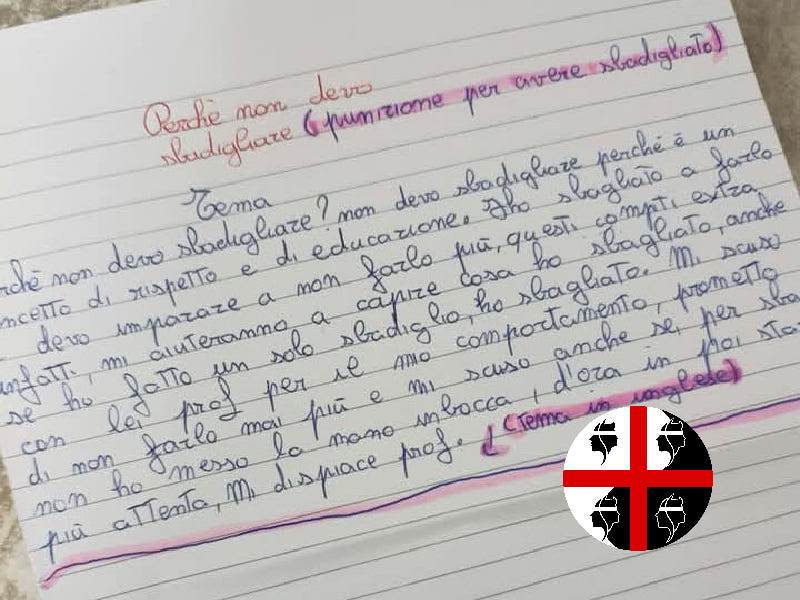 Perchè non devo
sbadigliare (punizione per avere sbadigliato)
Tema
rchè non devo sbadigliare? non devo sbadigliare perché è un
ncetto di rispetto e di educazione. Ho sbagliato a farlo
devo imparare a non farlo più, questi compiti extra
infatti, mi aiuteranno a capire cosa ho sbagliato, anche
se ho fatto un solo sbadiglio, ho sbagliato. Mi scuso
con lei prof per il mio comportamento, prometto
di non farlo mai più e mi scuso anche se, per sba
non ho messo la mano in bocca, d'ora in poi sta
più attenta, Mi dispiace prof. (Tema in inglese)